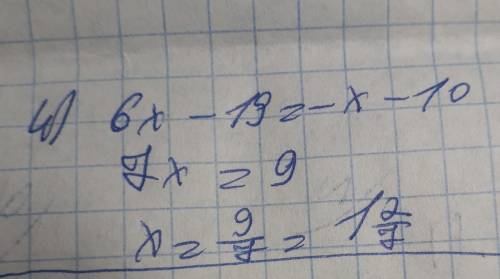 ы) 6x - 19 = -x - 10
7x = 9
x = 9/7 = 1 2/7